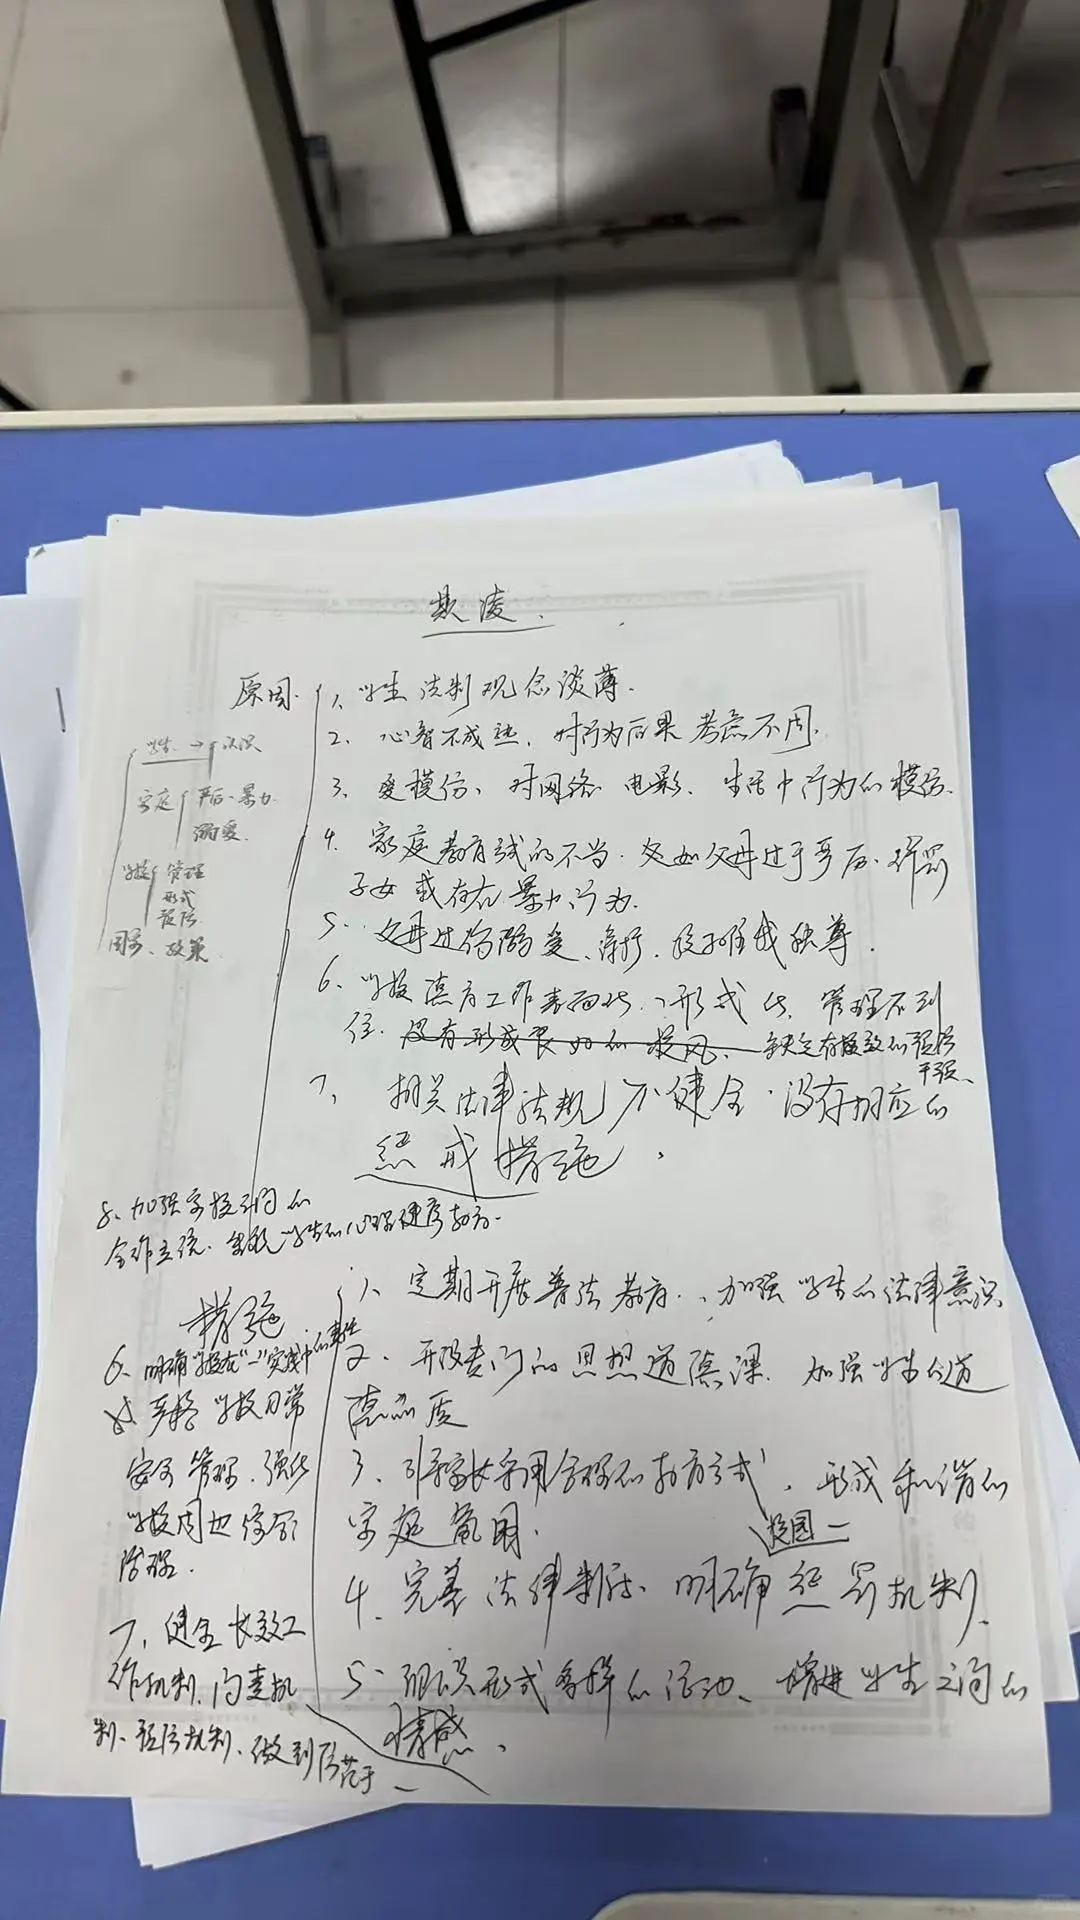 欺凌.
原因.
1、学生法制观念淡薄.
2、心智不成熟、对行为后果考虑不周.
3、爱模仿、对网络、电影、生活中行为的模仿.
4、家庭教育方式的不当.父母过于严厉.体罚
子女或存在暴力行为.
5、父母过份溺爱、唯我独尊.
6、学校德育工作表面化、形式化、管理不到
位.没有形成良好的校风、缺乏有效的预防
干预、
7、相关法律法规不健全.没有相应的
惩戒措施、
学生→认识
家庭 严厉、暴力
溺爱.
学校 管理
形式
预防
国家、政策
8、加强家校之间的
合作交流.重视学生的心理健康教育.
措施
1、定期开展普法教育、加强学生的法律意识
2、开设专门的思想道德课.加强学生的道
德品质
3、引导家长采用合理的教育方式,形成和谐的
家庭氛围.
校园一
4、完善法律制度、明确惩罚机制、
5、组织形式多样的活动、增进学生之间的
情感、
6、明确学校在"一"实践中的责任
严格学校日常
安全管理、强化
学校周边综合
治理.
7、健全长效工
作机制、
制、预防机制、做到防范于一